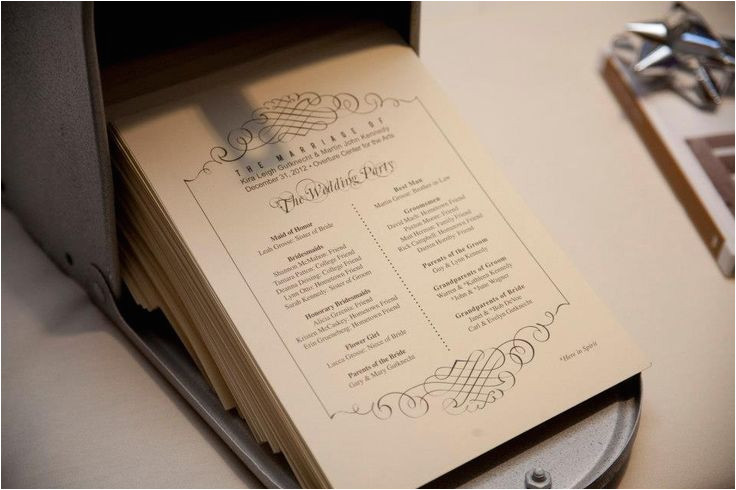 THE MARRIAGE OF
Kira Leigh Gutknecht & Martin John Kennedy
December 31, 2012 • Overture Center for the Arts
The Wedding Party
Maid of Honor
Leah Grosse: Sister of Bride
Bridesmaids
Shannon McMahon: Friend
Tamara Patton: College Friend
Deanna Dessing: College Friend
Lynn Otto: Hometown Friend
Sarah Kennedy: Sister of Groom
Honorary Bridesmaids
Alicia Grzesiis: Friend
Kristen McCaskey: Hometown Friend
Erin Gruenenberg: Hometown Friend
Flower Girl
Lucca Grosse: Niece of Bride
Parents of the Bride
Gary & Mary Gutknecht
Best Man
Martin Grosse: Brother-in-Law
Groomsmen
David Mach: Hometown Friend
Payton Moore: Friend
Matt Herman: Family Friend
Rick Campbell: Hometown Friend
Darren Hornby: Friend
Parents of the Groom
Guy & Lynn Kennedy
Grandparents of Groom
Warren & *Kathleen Kennedy
*John & *June Wagner
Grandparents of Bride
Janet & *Bob DeVoe
Carl & Evelyn Gutknecht
*Here in Spirit